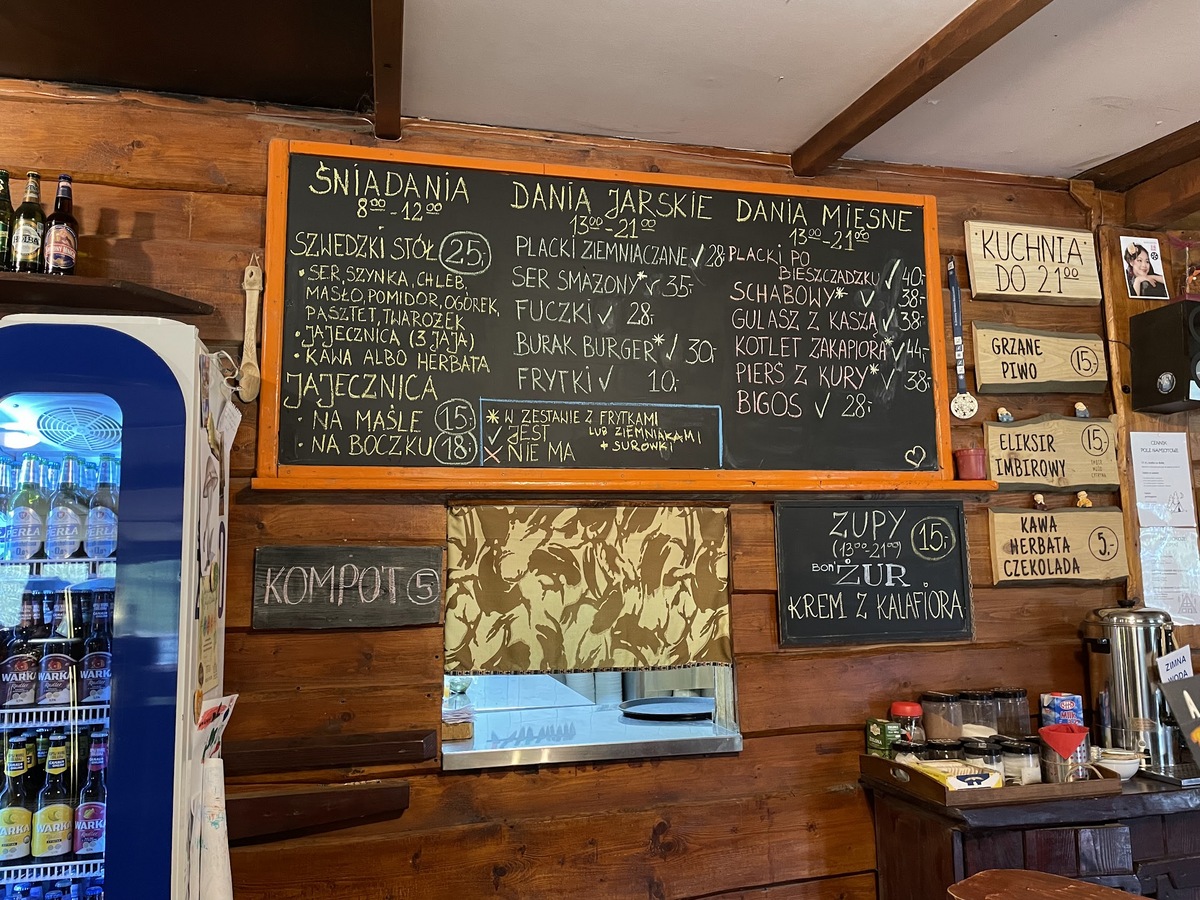 ŚNIADANIA
8⁰⁰-12⁰⁰
SZWEDZKI STÓŁ 25,-
• SER, SZYNKA, CHLEB,
MASŁO, POMIDOR, OGÓREK,
PASZTET, TWAROŻEK
• JAJECZNICA (3 JAJA)
• KAWA ALBO HERBATA
JAJECZNICA
• NA MAŚLE 15,-
• NA BOCZKU 18,-
DANIA JARSKIE
13⁰⁰-21⁰⁰
PLACKI ZIEMNIACZANE ✓ 28,-
SER SMAŻONY* ✓ 35,-
FUCZKI ✓ 28,-
BURAK BURGER* ✓ 30,-
FRYTKI ✓ 10,-
* W ZESTAWIE Z FRYTKAMI
LUB ZIEMNIAKAMI
+ SURÓWKI
✓ JEST
✗ NIE MA
DANIA MIĘSNE
13⁰⁰-21⁰⁰
PLACKI PO
BIESZCZADZKU ✓ 40,-
SCHABOWY* ✓ 38,-
GULASZ Z KASZĄ ✓ 38,-
KOTLET ZAKAPIORA* ✓ 44,-
PIERŚ Z KURY* ✓ 38,-
BIGOS ✓ 28,-
KUCHNIA
DO 21⁰⁰
GRZANE
PIWO 15,-
ELIKSIR
IMBIROWY 15,-
KAWA
HERBATA
CZEKOLADA 5,-
KOMPOT 5
ZUPY
(13⁰⁰-21⁰⁰) 15,-
BON' ŻUR
KREM Z KALAFIORA
CENNIK
POLE NAMIOTOWE
ZIMNA
WODA
PERŁA
PERŁA
PERŁA
0,0%
WARKA
Radler
WARKA
WARKA
WARKA
WARKA
WARKA
Milk